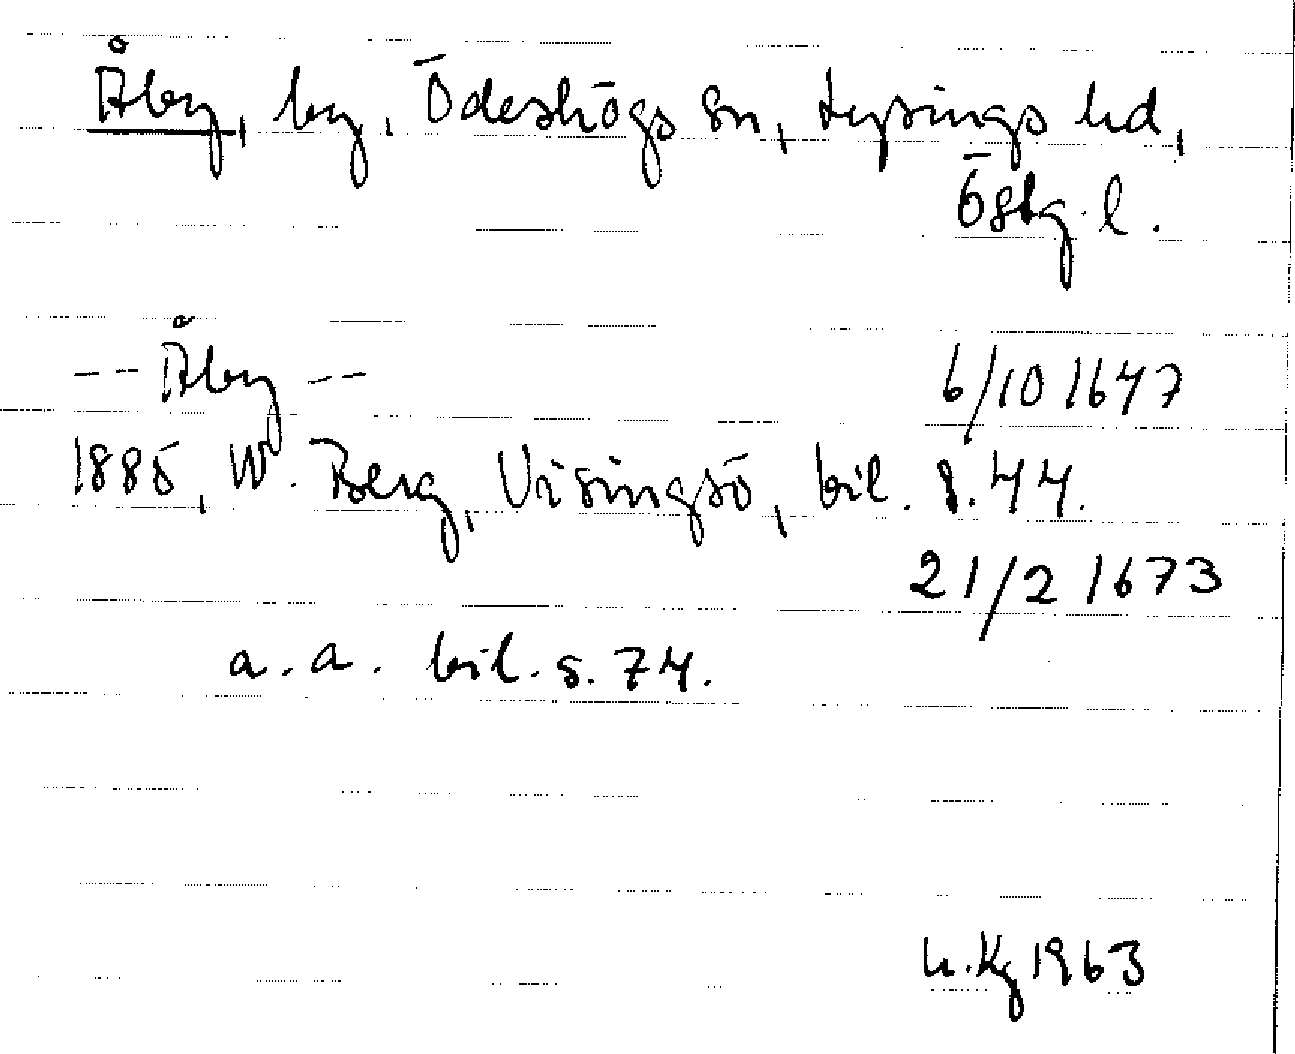 Åby, by, Ödeshögs sn, Lysings hd,
Östg. l.
-- Åby -- 6/10 1647
1885, W. Berg, Visingsö, bil. s. 44.
21/2 1673
a. a. bil. s. 74.
1963